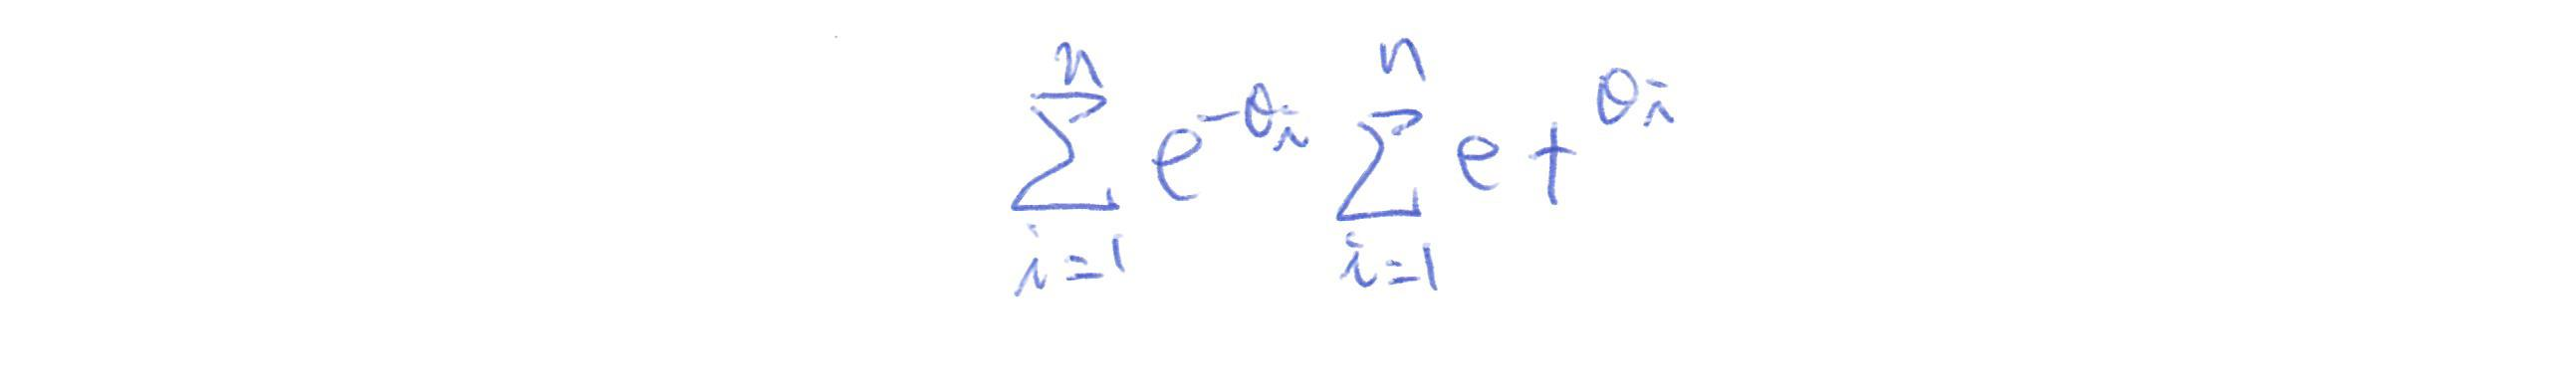 \sum_{i=1}^{n} e^{-\theta_i} \sum_{i=1}^{n} e +^{\theta_i}